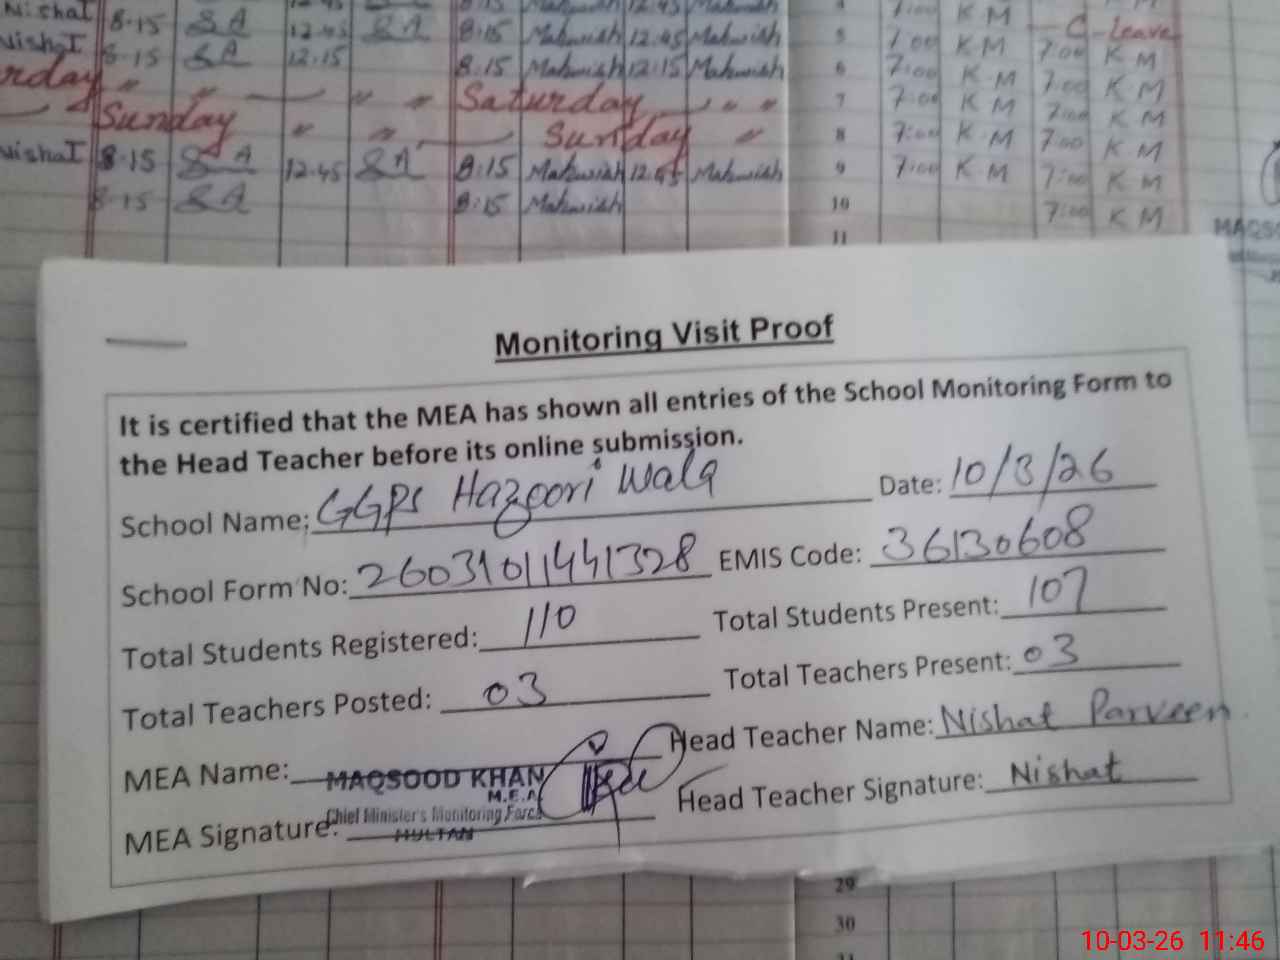 NishaI 8-15 SA 12-45 SA 8:15 Mahwish 12:45 Mahwish 5 7:00 K M C-Leave
NishaI 8-15 SA 12.15 8.15 Mahwish 12:15 Mahwish 6 7:00 K M 7:00 K M
Saturday 7 7:00 K M 7:00 K M
Sunday Sunday 8 7:00 K M 7:00 K M
NishaI 8-15 SA 12.45 SA 8:15 Mahwish 12:45 Mahwish 9 7:00 K M 7:00 K M
8-15 SA 8:15 Mahwish 10 7:00 K M
11
Monitoring Visit Proof
It is certified that the MEA has shown all entries of the School Monitoring Form to
the Head Teacher before its online submission.
School Name: GGPS Hazoori Wala Date: 10/3/26
School Form No: 26031011441328 EMIS Code: 36130608
Total Students Registered: 110 Total Students Present: 107
Total Teachers Posted: 03 Total Teachers Present: 03
MEA Name: MAQSOOD KHAN Head Teacher Name: Nishat Parveen
M.E.A
Chief Minister's Monitoring Force
MEA Signature: MULTAN Head Teacher Signature: Nishat
29
30
10-03-26 11:46